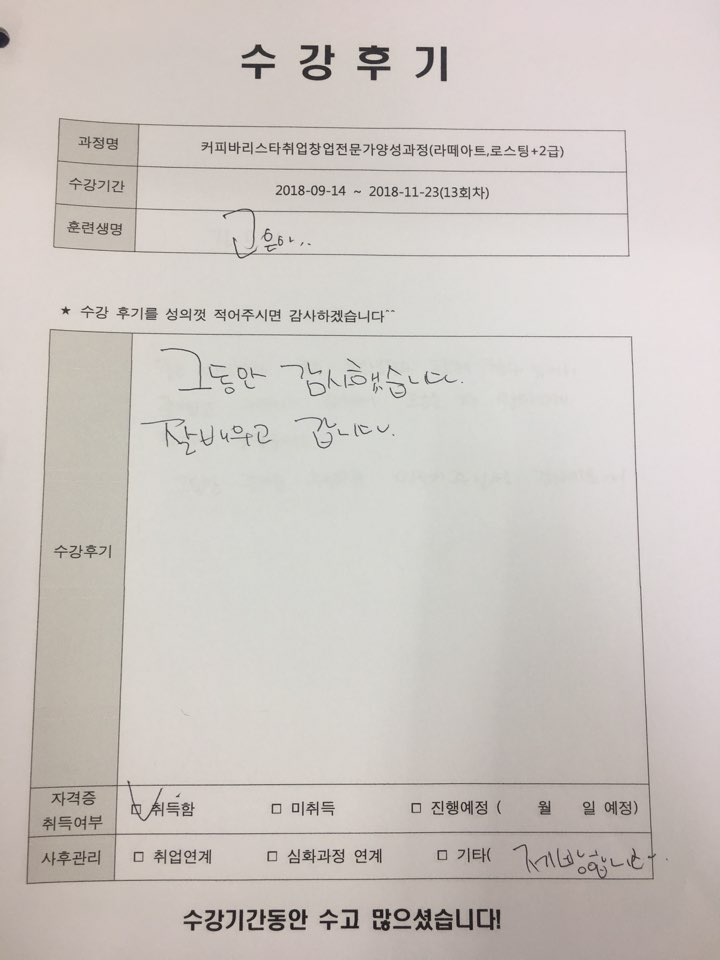 수강후기
과정명 커피바리스타취업창업전문가양성과정(라떼아트,로스팅+2급)
수강기간 2018-09-14 ~ 2018-11-23(13회차)
훈련생명
★ 수강 후기를 성의껏 적어주시면 감사하겠습니다^^
그동안 감사했습니다.
잘배우고 갑니다.
수강후기
자격증 취득여부 □ 취득함 □ 미취득 □ 진행예정 ( 월 일 예정)
사후관리 □ 취업연계 □ 심화과정 연계 □ 기타(
수강기간동안 수고 많으셨습니다!